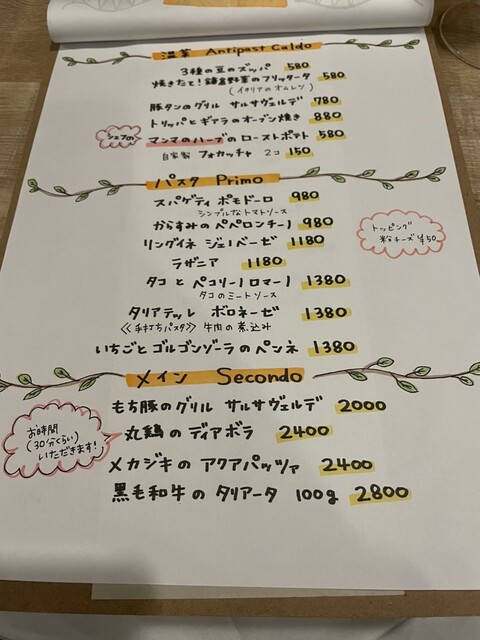 温菜 Antipast Caldo
3種の豆のズッパ 580
焼きたて！鎌倉野菜のフリッタータ 580
(イタリアのオムレツ)
豚タンのグリル サルサヴェルデ 780
トリッパとギアラのオーブン焼き 880
シェフの マンマのハーブのローストポテト 580
自家製 フォカッチャ 2コ 150
パスタ Primo
スパゲティ ポモドーロ 980
シンプルなトマトソース
からすみのペペロンチーノ 980
トッピング
粉チーズ ¥50
リングイネ ジェノベーゼ 1180
ラザニア 1180
タコとペコリーノロマーノ 1380
タコのミートソース
タリアテッレ ボロネーゼ 1380
《手打ちパスタ》牛肉の煮込み
いちごとゴルゴンゾーラのペンネ 1380
メイン Secondo
もち豚のグリル サルサヴェルデ 2000
お時間
(30分くらい)
いただきます!
丸鶏のディアボラ 2400
メカジキのアクアパッツァ 2400
黒毛和牛のタリアータ 100g 2800